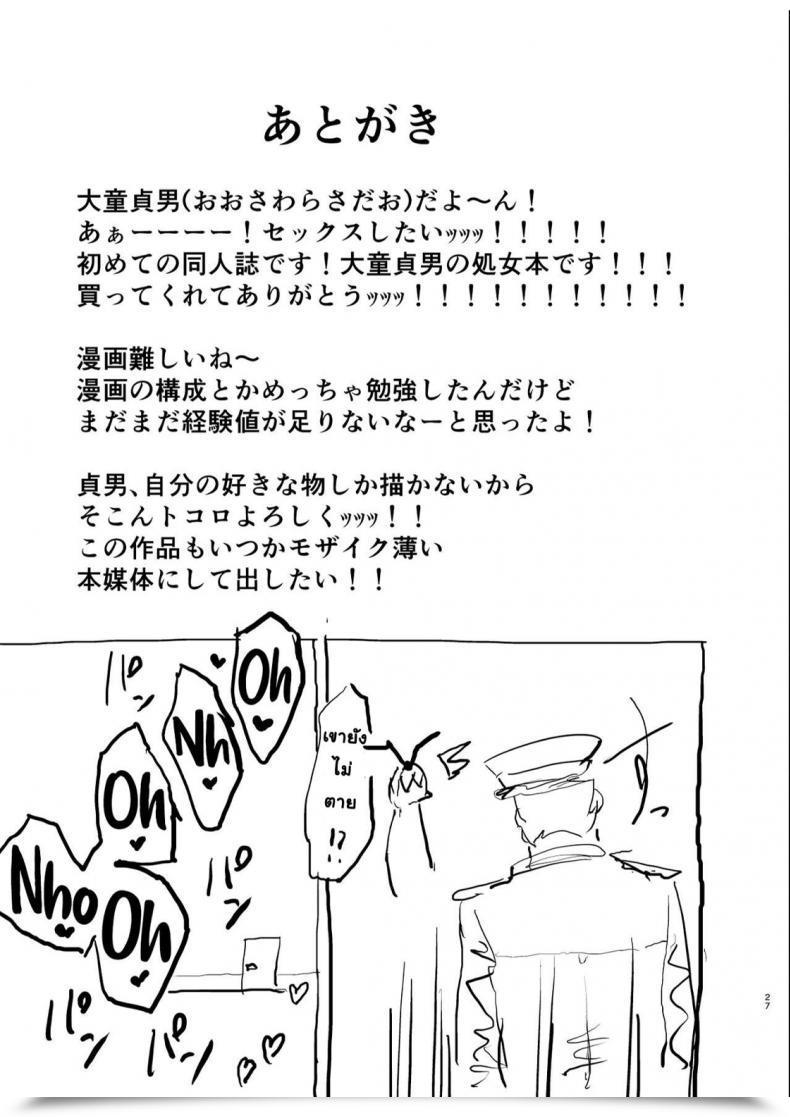 あとがき
大童貞男(おおさわらさだお)だよ～ん！
あぁーーーー！セックスしたいｯｯｯ！！！！！
初めての同人誌です！大童貞男の処女本です！！！
買ってくれてありがとうｯｯｯ！！！！！！！！！！！
漫画難しいね～
漫画の構成とかめっちゃ勉強したんだけど
まだまだ経験値が足りないなーと思ったよ！
貞男、自分の好きな物しか描かないから
そこんトコロよろしくｯｯｯ！！
この作品もいつかモザイク薄い
本媒体にして出したい！！
Oh
パン
Nh
Oh
เขายัง
ไม่
ตาย
!?
スッ
パン
Nho
Oh
パン
パン
27